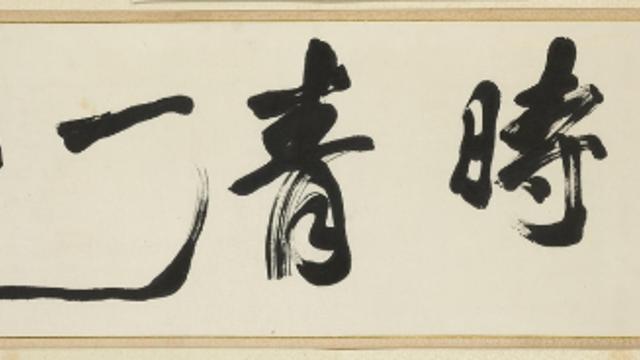 時青一